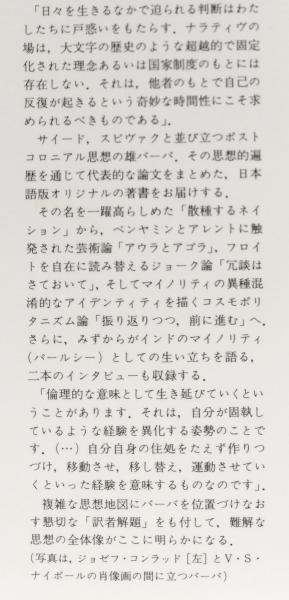 「日々を生きるなかで迫られる判断はわた
したちに戸惑いをもたらす．ナラティヴの
場は，大文字の歴史のような超越的で固定
化された理念あるいは国家制度のもとには
存在しない．それは，他者のもとで自己の
反復が起きるという奇妙な時間性にこそ求
められるべきものである」．
サイード，スピヴァクと並び立つポスト
コロニアル思想の雄バーバ．その思想的遍
歴を通じて代表的な論文をまとめた，日本
語版オリジナルの著書をお届けする．
その名を一躍高らしめた「散種するネイ
ション」から，ベンヤミンとアレントに触
発された芸術論「アウラとアゴラ」，フロイ
トを自在に読み替えるジョーク論「冗談は
さておいて」，そしてマイノリティの異種混
淆的なアイデンティティを描くコスモポリ
タニズム論「振り返りつつ，前に進む」へ．
さらに，みずからがインドのマイノリティ
（パールシー）としての生い立ちを語る，
二本のインタビューも収録する．
「倫理的な意味として生き延びていくとい
うことがあります．それは，自分が固執し
ているような経験を異化する姿勢のことで
す．（…）自分自身の住処をたえず作りつ
づけ，移動させ，移し替え，運動させてい
くといった経験を意味するものなのです」．
複雑な思想地図にバーバを位置づけなお
す懇切な「訳者解題」をも付して，難解な
思想の全体像がここに明らかになる．
（写真は，ジョゼフ・コンラッド［左］とV・S・
ナイポールの肖像画の間に立つバーバ）